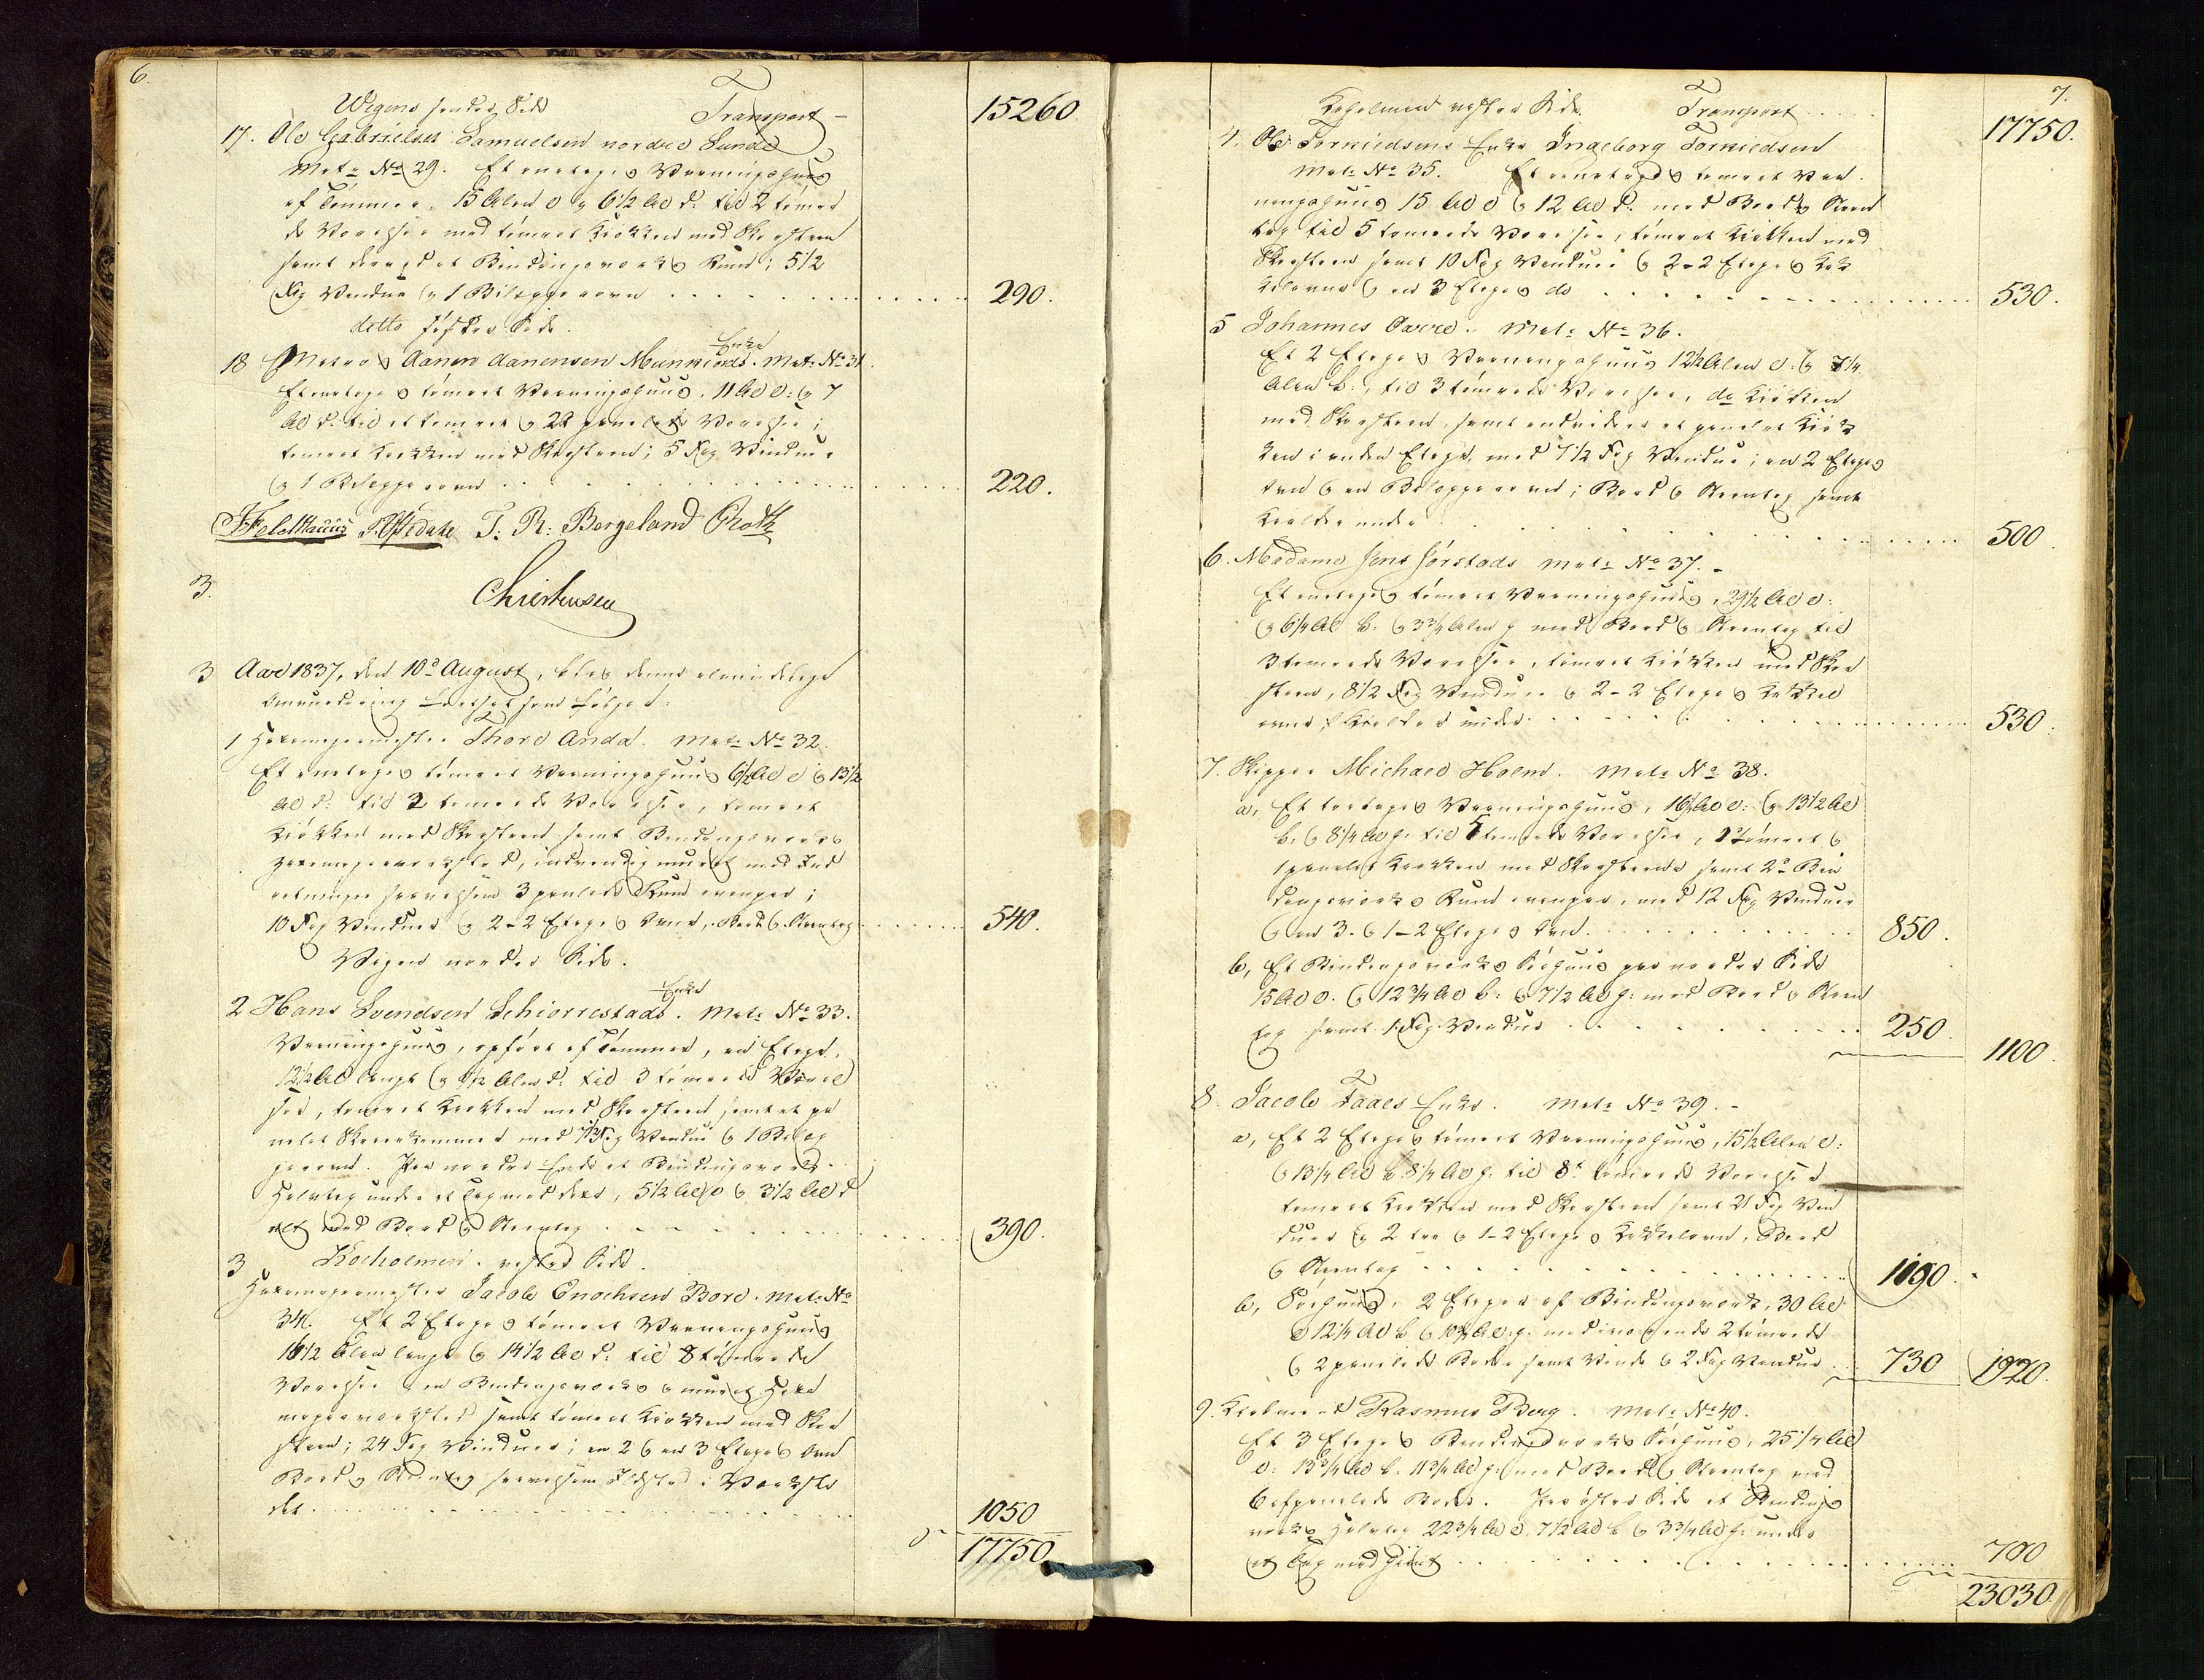 6.
Wigens søndre Side Transport - 15260
17. Ole Gabrielsen Samuelsen nordre Sunde
Mat: No 29. Et eenetages Vaaningshuus
af Tømmer, 15 Alen l: og 6 1/2 Al d: til 2 tømre
de Værelser med tømret Kjøkken med Skorsteen
samt et Bindingsværks Rum; 5 1/2
Fag Vinduer og 1 Bilæggerovn . . . 290.
detto Side.
18 Aanen Aanensen Enke. Mat: No 31.
Et eenetages tømret Vaaningshuus, 11 Al l: og 7
Al d: til et tømret og 2 panelede Værelser;
tømret Kjøkken med Skorsteen; 5 Fag Vinduer
og 1 Bilæggerovn . . . 220.
T. R: Bergeland
3. Christensen
3 Aar 1837, den 10d August, blev denne almindelige
Omvurdering fortsat som følger:
1 Thore Anda. Mat: No 32.
Et eenetages tømret Vaaningshuus 6 1/2 Al l: og 13 1/2
Al d: til 2 tømrede Værelser, tømret
Kjøkken med Skorsteen samt Bindingsværks
indvendig muret med Ind
retninger saavelsom 3 panelede Rum ovenpaa;
10 Fag Vinduer og 2-2 Etages Ovne, Bord og Steentag . . . 540.
Vigens nordre Side.
2 Hans Svendsen Schiorrestads Enke. Mat: No 33.
Vaaningshuus, opført af Tømmer, en Etage,
12 1/2 Al langt og Alen d: til 3 tømrede Værel
ser, tømret Kjøkken med Skorsteen samt et pa
nelet med Fag Vinduer og 1 Bilæg
gerovn. Paa nordre Ende et Bindingsværks
Halvtag under et Tag med dets, 5 1/2 Al l og 3 1/2 Al d
alt med Bord og Steentag . . . 390.
3 Kocholmen. vestre Side.
Jacob Enochsen Bore. Mat: No
34. Et 2 Etages tømret Vaaningshuus
16 1/2 Alen langt og 14 1/2 Al d: til 8 tømrede
Værelser og en Bindingsværks og muret
samt tømret Kjøkken med Skor
steen; 24 Fag Vinduer; en 2 og en 3 Etages Ovn
Bord og Steentag saavelsom Ildsted i Værkste
det . . . 1050
17750.
7.
Kogholmens vestre Side. Transport . . . 17750.
4. Ole Tormedsens Enke Ingeborg Tormedsen
Mat: No 35. Et eenetages tømret Vaa
ningshuus 15 Al l og 12 Al d: med Bord og Steen
tag til 5 tømrede Værelser, tømret Kjøkken med
Skorsteen samt 10 Fag Vinduer og 2-2 Etages Kak
kelovne og en 3 Etages do . . . 530.
5 Johannes Mat: No 36.
Et 2 Etages Vaaningshuus 12 1/2 Alen l: og 7 1/4
Alen b:, til 3 tømrede Værelser, do Kjøkken
med Skorsteen, samt endvidere et panelet Kjøk
ken i anden Etage, med 7 1/2 Fag Vinduer; en 2 Etages
Ovn og en Bilæggerovn; Bord og Steentag samt
Kjælder under . . . 500.
6. Madame Mat: No 37. -
Et eenetages tømret Vaaningshuus, 29 1/2 Al l:
og 6 1/4 Al b: og 3 3/4 Alen h med Bord og Steentag til
3 tømrede Værelser, tømret Kjøkken med Skor
steen, 8 1/2 Fag Vinduer og 2-2 Etages Kakkel
ovne, Kjælder under . . . 530.
7. Skipper Michael Holm. Mat: No 38.
a, Et toetages Vaaningshuus, 16 1/2 Al l: og 13 1/2 Al
b: og 8 1/4 Al h: til 5 tømrede Værelser, 1 tømret og
1 panelet Kjøkken med Skorsteene samt 2de Bin
dingsværks Rum ovenpaa, med 12 Fag Vinduer
og en 3- og 1-2 Etages Ovn . . . 850.
b, Et Bindingsværks Søehuus paa nordre Side
15 Al l. og 12 3/4 Al b: og 7 1/2 Al h: med Bord og Steen
tag samt 1 Fag Vinduer . . . 250. 1100.
8. Jacob Faaes Enke. Mat: No 39. -
a, Et 2 Etages tømret Vaaningshuus, 15 1/2 Alen l:
og 13 1/4 Al b: 8 1/4 Al h: til 8te tømrede Værelser
tømret Kjøkken med Skorsteen samt 21 Fag Vin
duer og 2 tre og 1-2 Etages Kakkelovn, Bord
og Steentag . . . 1190.
b, Søehuus, 2 Etager af Bindingsværk, 30 Al
l 12 1/4 Al b og 10 3/4 Al h: med 2 tømrede
og 2 panelede Boder samt Vinde og 2 Fag Vinduer . . . 730 1920.
9. Kjøbmand Rasmus Berg. Mat: No 40.
Et 3 Etages Bindingsværks Søehuus, 25 1/4 Al
l: 13 3/4 Al b: 11 3/4 Al h: med Bord og Steentag med
6 afpanelede Boder. Paa østre Side et Bindings
værks Halvtag 22 3/4 Al l, 7 1/2 Al b og 3 3/4 Al h: under
et Tag med Huset . . . 700
23030.